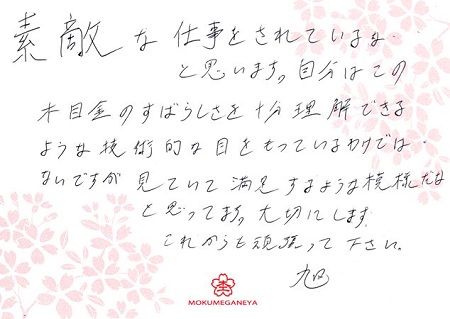 素敵な仕事をされていますな
と思います。自分はこの
木目金のすばらしさを十分理解できる
ような技術的な目をもっているわけでは
ないですが見ていて満足するような模様だな
と思ってます。大切にします。
これからも頑張って下さい。
旭
MOKUMEGANEYA